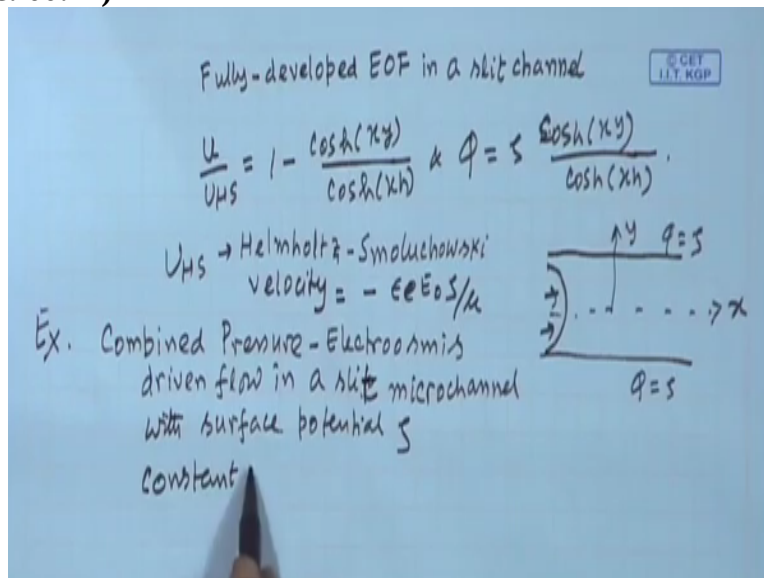 Fully-developed EOF in a slit channel
© CET
I.I.T. KGP
u/U_HS = 1 - cosh(xy)/cosh(xh) & φ = ζ cosh(xy)/cosh(xh).
U_HS → Helmholtz-Smoluchowski
velocity = - ϵeE₀ζ/μ
y φ=ζ
x
φ=ζ
Ex. Combined Pressure-Electroosmis
driven flow in a slit microchannel
with surface potential ζ
constant